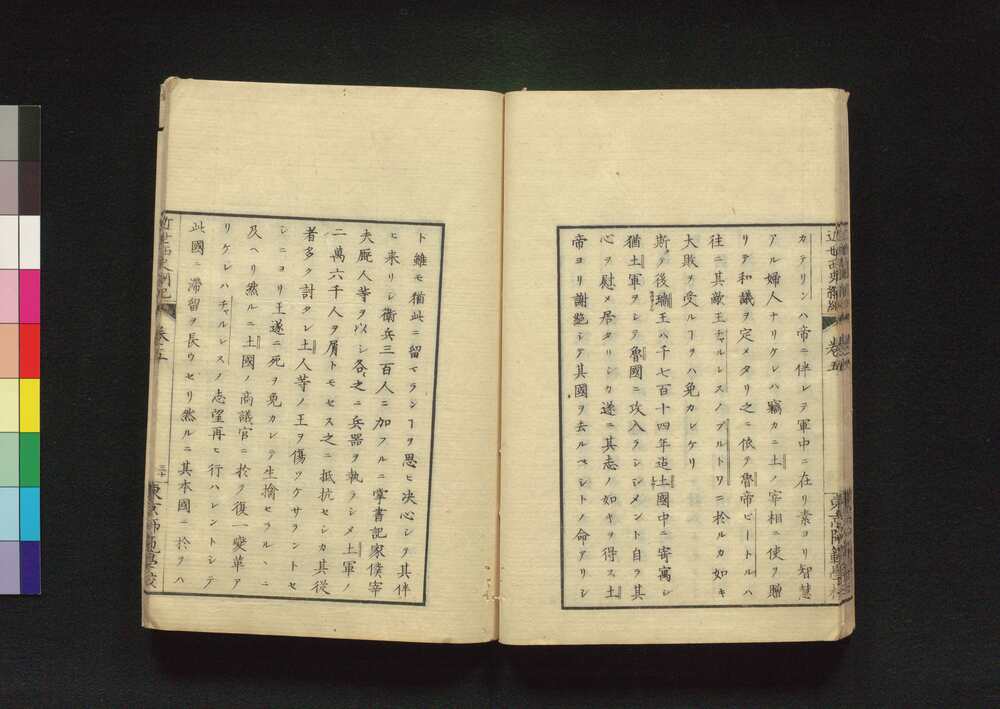 カテリンハ帝ニ伴レテ軍中ニ在リ素ヨリ智慧
アル婦人ナリケレハ竊カニ土ノ宰相ニ使ヲ贈
リテ和議ヲ定メタリ之ニ依テ魯帝ピートルハ
往ニ其敵王チャルレスノプルトワニ於ルカ如キ
大敗ヲ受ルヿヲハ免カレケリ
斯テ後瑞王ハ千七百十四年迄土國中ニ寄寓シ
猶土軍ヲシテ魯國ニ攻入ラシシメント自ラ其
心ヲ慰メ居タリシカ遂ニ其志ノ如キヲ得ス土
帝ヨリ謝絶シテ其國ヲ去ルベシトノ命アリシ
近世西史綱紀 卷五
東京師範學校
ト雖モ猶此ニ留マラン ヿヲ思ヒ决心シテ其伴
ヒ来リシ衛兵三百人ニ加フルニ掌書記家僕宰
夫厩人等ヲ以シ各之ニ兵器ヲ執ラシメ土軍ノ
二萬六千人ヲ屑トモセス之ニ抵抗セシカ其從
者多ク討タレ土人等ノ王ヲ傷ツケサラントセ
シニヨリ王遂ニ死ヲ免カレテ生擒セラル丶ニ
及ヘリ然ルニ土國ノ商議官ニ於テ復一變革ア
リケレハチャルレスノ志望再ヒ行ハレントシテ
此國ニ滞留ヲ長ウセリ然ルニ其本國ニ於テハ
近世西史綱紀 卷五
三十一
東京師範學校